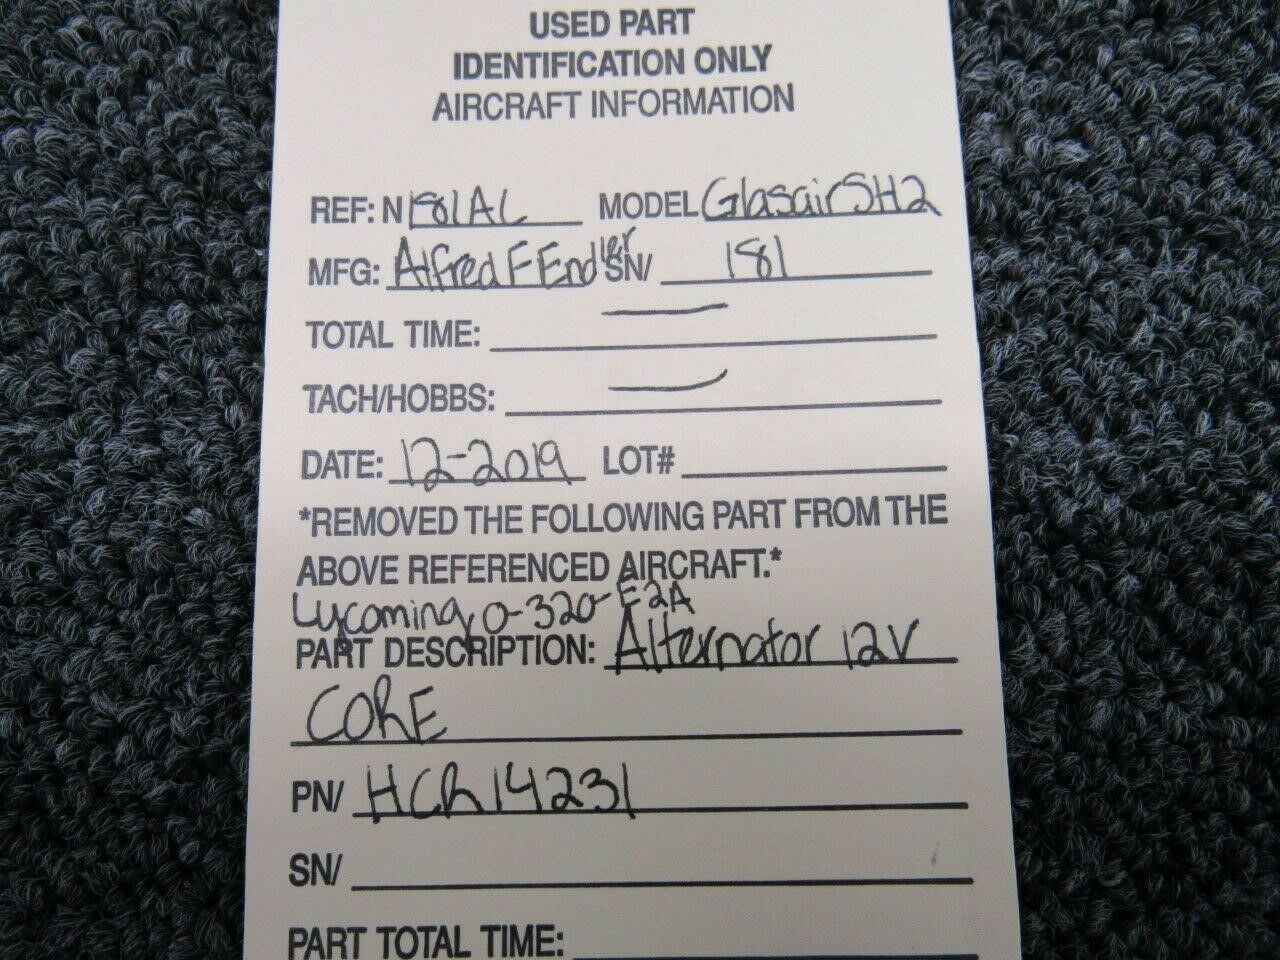 USED PART
IDENTIFICATION ONLY
AIRCRAFT INFORMATION
REF: N181AL MODEL Glasair SH2
MFG: Alfred F Endller SN/ 181
TOTAL TIME: —
TACH/HOBBS: —
DATE: 12-2019 LOT#
*REMOVED THE FOLLOWING PART FROM THE
ABOVE REFERENCED AIRCRAFT.*
Lycoming O-320-E2A
PART DESCRIPTION: Alternator 12V
CORE
PN/ HCR14231
SN/
PART TOTAL TIME: